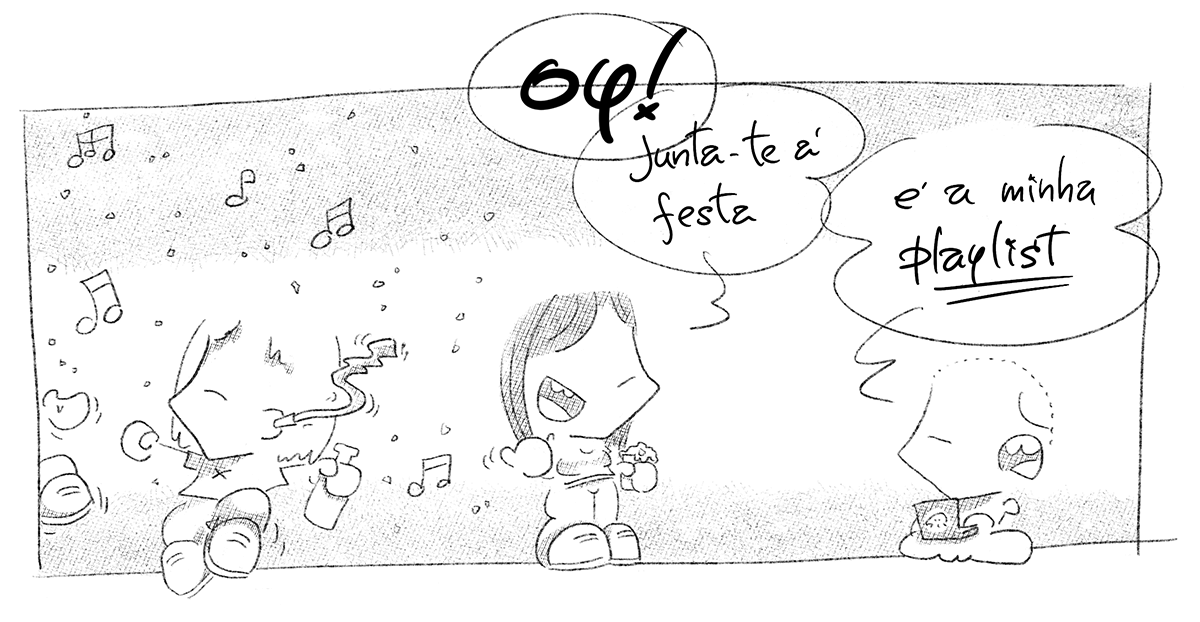 oy!
Junta-te á
festa
é a minha
playlist